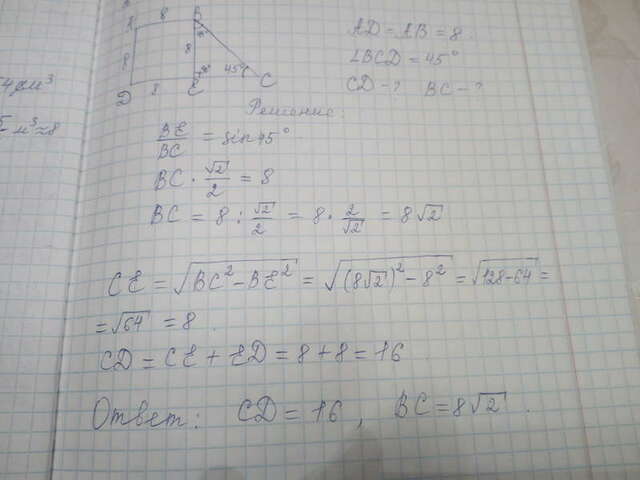 A 8 B
8 8 45°
D 8 E 45° C
AD = AB = 8.
∠BCD = 45°
CD - ? BC - ?
Решение:
BE/BC = sin 45°
BC · √2/2 = 8
BC = 8 : √2/2 = 8 · 2/√2 = 8√2
CE = √(BC² - BE²) = √((8√2)² - 8²) = √(128-64) =
= √64 = 8.
CD = CE + ED = 8 + 8 = 16
Ответ: CD = 16, BC = 8√2.